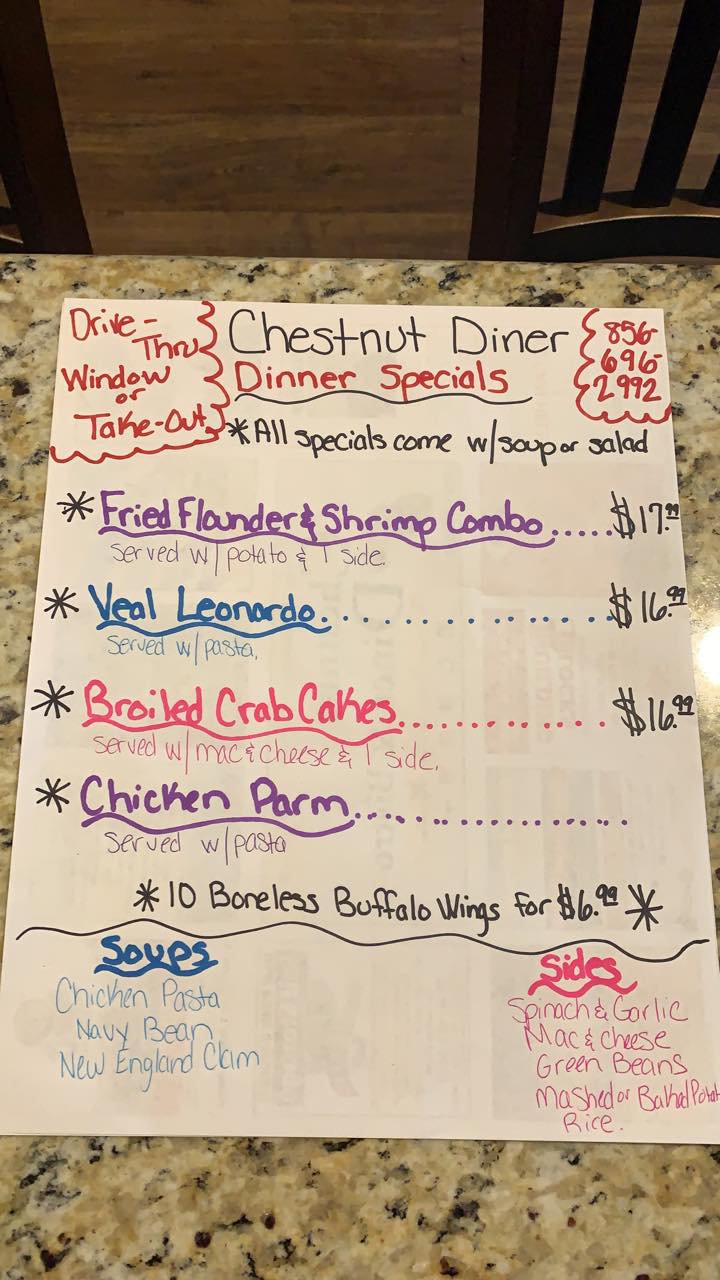 Drive-
Thru
Window
or
Take-Out
Chestnut Diner
Dinner Specials
856-
696-
2992
*All specials come w/soup or salad
*Fried Flounder & Shrimp Combo.....$17.99
served w/potato & 1 side.
*Veal Leonardo..............$16.99
served w/pasta.
*Broiled Crab Cakes............$16.99
served w/mac & cheese & 1 side.
*Chicken Parm................
served w/pasta
*10 Boneless Buffalo Wings for $6.99*
Soups
Chicken Pasta
Navy Bean
New England Clam
Sides
Spinach & Garlic
Mac & Cheese
Green Beans
Mashed or Baked Potat
Rice.